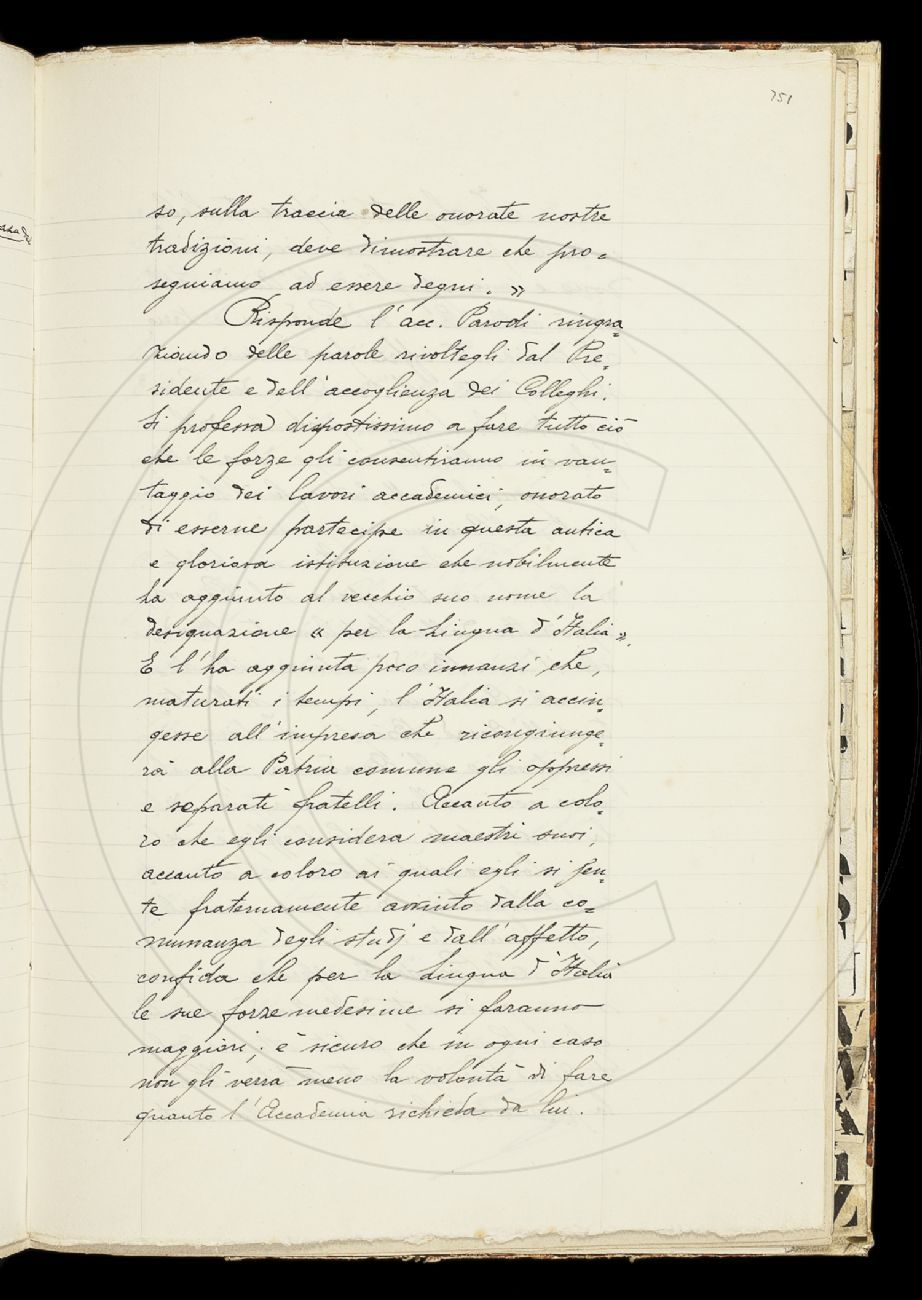 751
so, sulla traccia delle onorate nostre
tradizioni, deve dimostrare che pro=
seguiamo ad essere degni. »
Risponde l'acc. Parodi ringra=
ziando delle parole rivoltegli dal Pre=
sidente e dell'accoglienza dei Colleghi.
Si professa dispostissimo a fare tutto ciò
che le forze gli consentiranno in van=
taggio dei lavori accademici, onorato
di esserne partecipe in questa antica
e gloriosa istituzione che nobilmente
ha aggiunto al vecchio suo nome la
designazione « per la Lingua d'Italia ».
E l'ha aggiunta poco innanzi che,
maturati i tempi, l'Italia si accin=
gesse all'impresa che ricongiunge=
rà alla Patria comune gli oppressi
e separati fratelli. Accanto a colo=
ro che egli considera maestri suoi,
accanto a coloro ai quali egli si sen=
te fraternamente avvinto dalla co=
munanza degli studj e dall'affetto,
confida che per la Lingua d'Italia
le sue forze medesime si faranno
maggiori; è sicuro che in ogni caso
non gli verrà meno la volontà di fare
quanto l'Accademia richieda da lui.